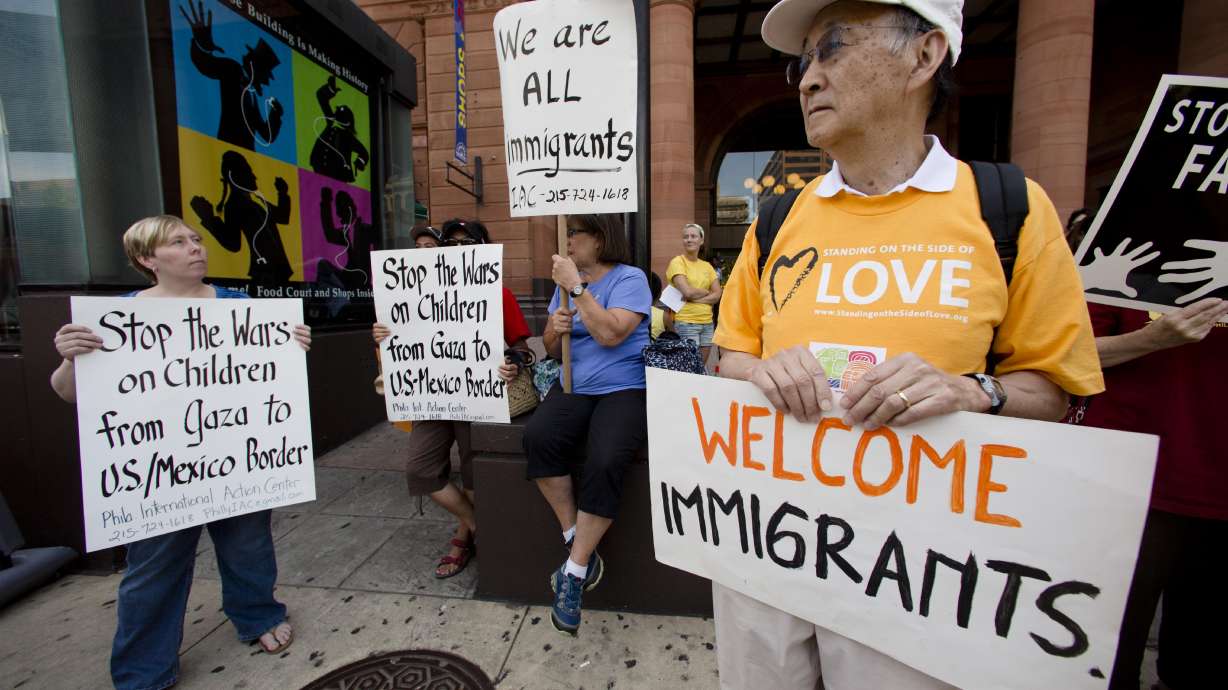 se Building Is Making History
me! Food Court and Shops Inside
SHOPS
We are
ALL
immigrants
IAC-215-724-1618
Stop the Wars
on Children
from Gaza to
U.S/Mexico Border
Phila International Action Center
215-724-1618 PhillyIAC@gmail.com
Stop the Wars
on Children
from Gaza to
US-Mexico Border
Phila Int. Action Center
STANDING ON THE SIDE OF
LOVE
www.StandingontheSideofLove.org
WELCOME
IMMIGRANTS.
STO
FA